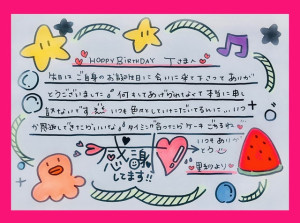 HAPPY BIRTHDAY Tさまへ
先日はご自身のお誕生日に会いに来て下さってありが
とうございました 何もしてあげられなくて本当に申し
訳ないです いつも色々としていただいてるんに、いつ
か恩返しできたらいいな タイミング合ったらケーキ ごちそう
いつもあり
とう
感謝
してます!!
里
より